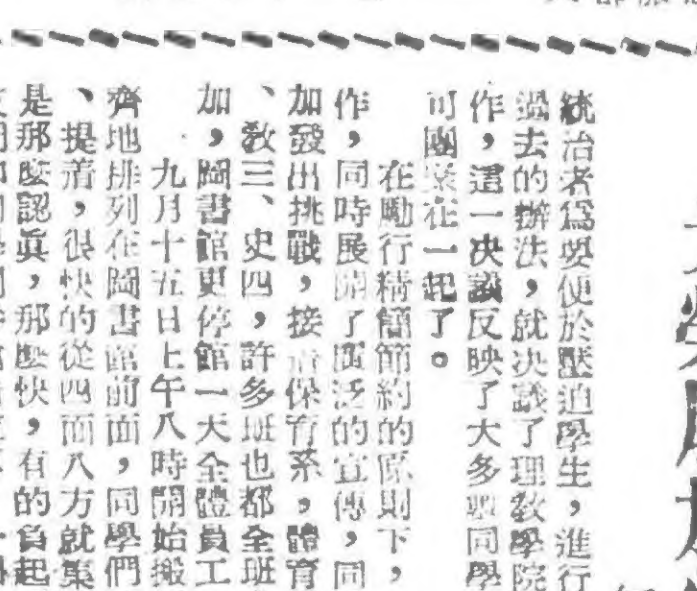 統治者爲要便於壓迫學生，進行
過去的辦法，就決議了理教學院
作，這一決議反映了大多數同學
可團聚在一起了。
在勵行精簡節約的原則下，
作，同時展開了廣泛的宣傳，同
加發出挑戰，接着保育系，體育
、教三、史四，許多班也都全班
加，圖書館更停館一天全體員工
九月十五日上午八時開始搬
齊地排列在圖書館前面，同學們
、提着，很快的從四面八方就集
是那麽認眞，那麽快，有的負起